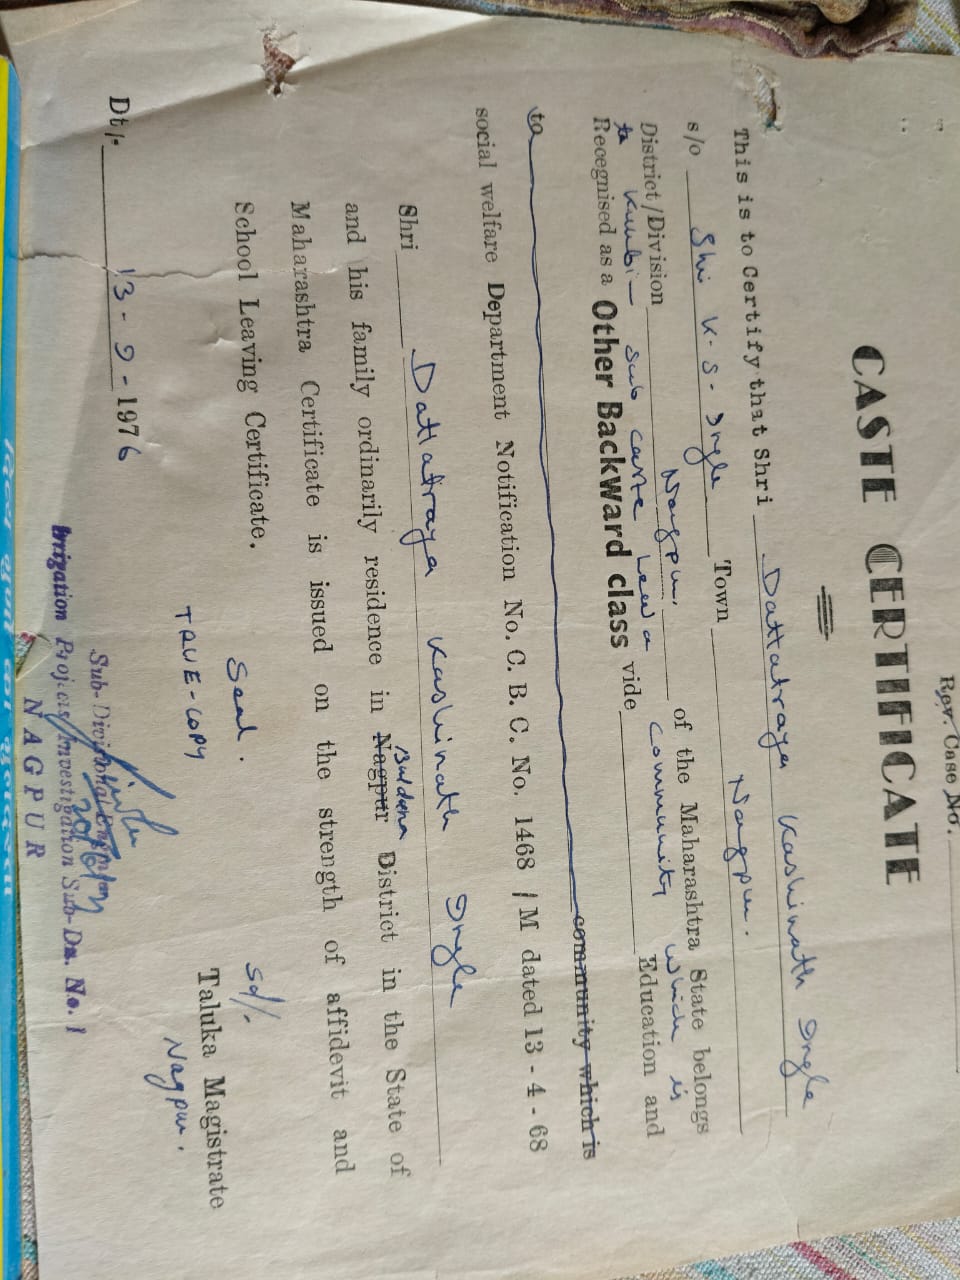 Rev. Case No.
CASTE CERTIFICATE
This is to Certify that Shri Dattatraya Kashinath Ingle
s/o Shri K. S. Ingle Town Nagpur.
District/Division Nagpur. of the Maharashtra State belongs
to Kunbi - sub caste Lewa community which is
Recegnised as a Other Backward class vide Education and
to community which is
social welfare Department Notification No. C. B. C. No. 1468 / M dated 13 - 4 - 68
Shri Dattatraya Kashinath Ingle
Buldana
and his family ordinarily residence in Nagpur District in the State of
Maharashtra Certificate is issued on the strength of affidevit and
School Leaving Certificate.
Seal.
Sd/-
Taluka Magistrate
Nagpur.
TRUE-COPY
Dt/. 13 - 9 - 1976
Sub-Divisional
Irrigation Projects Investigation Sub-Dn. No. 1
NAGPUR